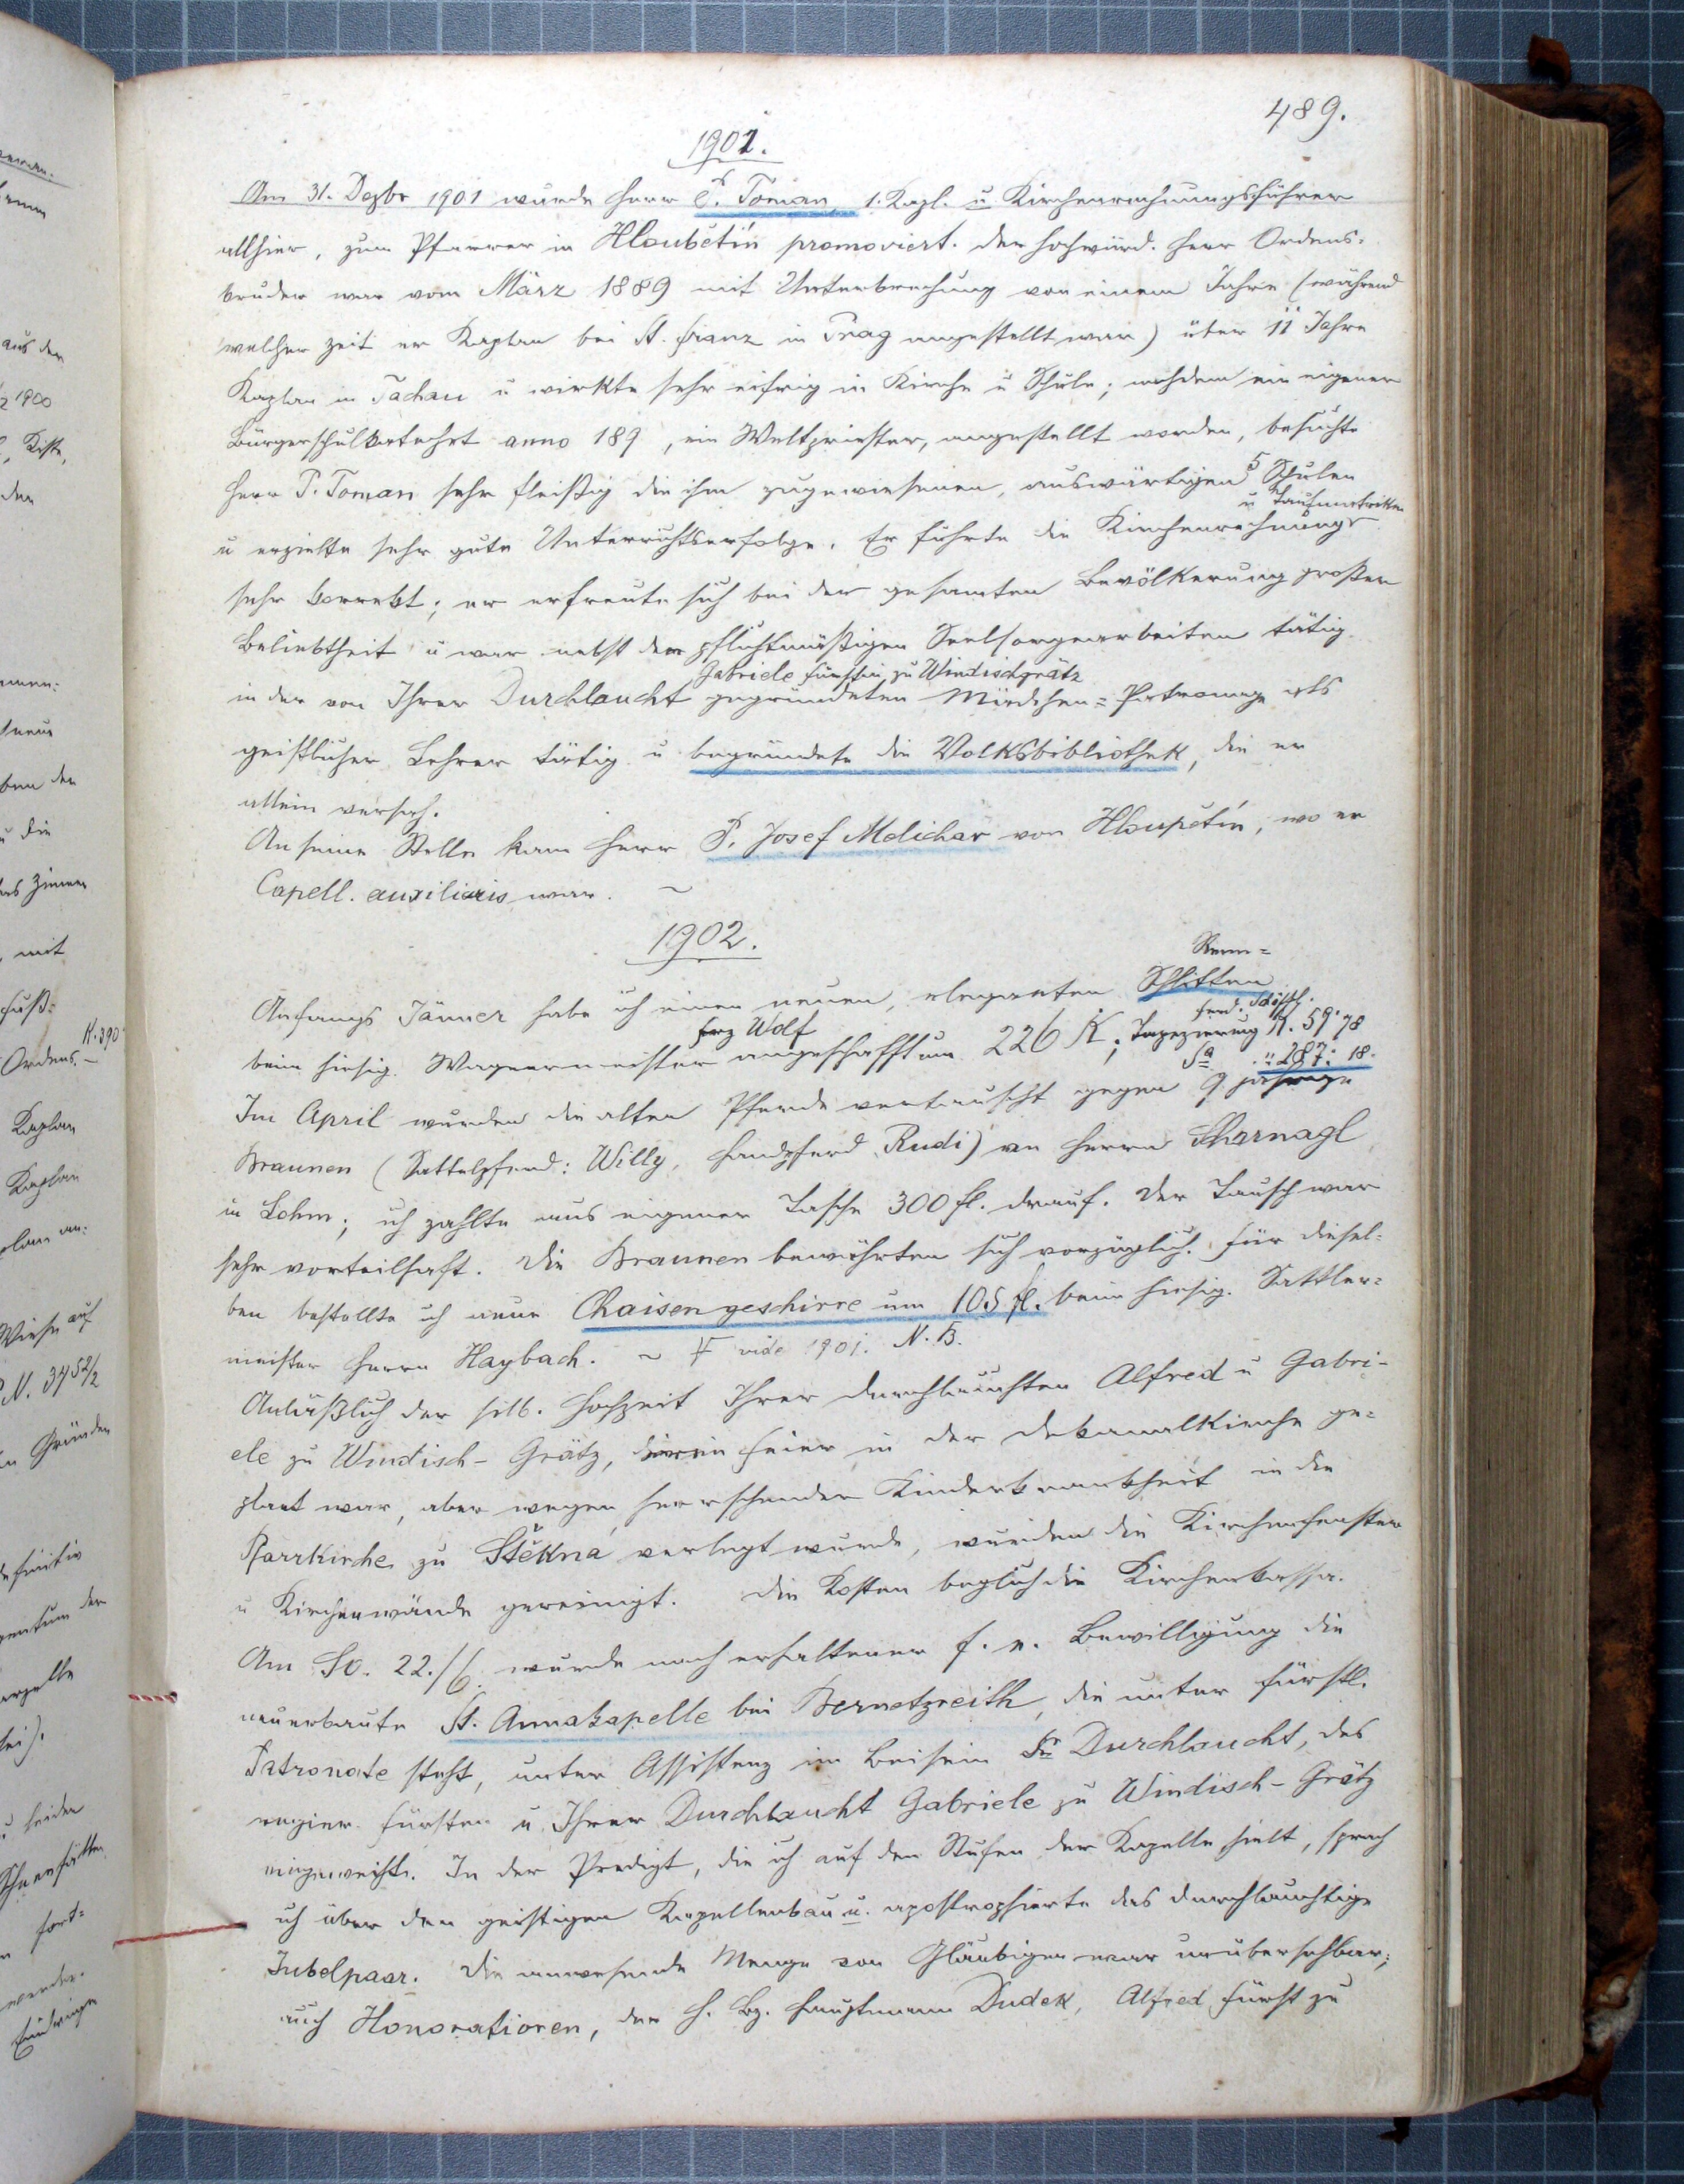 489.
1901.
Am 31. Dezbr 1901 wurde Herr P. Toman, 1. Kapl. u Kirchenrechnungsführer
allhier, zum Pfarrer in Hloubětín promoviert. Der hochwürd. Herr Ordens-
bruder war vom März 1889 mit Unterbrechung von einem Jahre (während
welcher Zeit er Kaplan bei St. Franz in Prag angestellt war) über 11 Jahre
Kaplan in Tachau u wirkte sehr eifrig in Kirche u Schule; nachdem ein eigener
Bürgerschulkatechet anno 189 , ein Weltpriester, angestellt worden, besuchte
Herr P. Toman sehr fleißig die ihm zugewiesenen, auswärtigen 5 Schulen
u Taufmatriken
u erzielte sehr gute Unterrichtserfolge. Er führte die Kirchenrechnung
sehr korrekt; er erfreute sich bei der gesamten Bevölkerung großer
Beliebtheit u war nebst den pflichtmäßigen Seelsorgearbeiten tätig
Gabriele Fürstin zu Windischgrätz
in der von Ihrer Durchlaucht gegründeten Mädchen-Patronage als
geistlicher Lehrer tätig u begründete die Volksbibliothek, die er
allein versah.
An seine Stelle kam Herr P. Josef Melichar von Hloupětín, wo er
Capell. auxiliaris war. ~
1902.
Renn-
Anfangs Jänner habe ich einen neuen, eleganten Schlitten
Frz Wolf
beim hiesig. Wagnermeister angeschafft um 226 K; Tapezierung K. 59·78
Sa " 287: 18.
Im April wurden die alten Pferde vertauscht gegen 9 jährige
Braunen (Sattelpferd: Willy, Handpferd Rudi) von Herrn Scharnagl
in Lohm; ich zahlte aus eigener Tasche 300 fl. drauf. Der Tausch war
sehr vorteilhaft. Die Braunen bewährten sich vorzüglich. Für diesel-
ben bestellte ich neue Chaisengeschirre um 105 fl. beim hiesig. Sattler-
meister Herrn Haybach. ~ vide 1901. N. B.
Anläßlich der silb. Hochzeit Ihrer Durchlauchten Alfred u Gabri-
ele zu Windisch-Grätz, Feier in der Dekanalkirche ge-
plant war, aber wegen herrschender Kinderkrankheit in die
Pfarrkirche zu Stěkna verlegt wurde, wurden die Kirchenfenster
u Kirchenwände gereinigt. Die Kosten beglich die Kirchenkassa.
Am So. 22./6. wurde nach erhaltener f. e. Bewilligung die
neuerbaute St. Annakapelle bei Bernetzreith, die unter fürstl.
Patronate steht, unter Assistenz im Beisein Sr Durchlaucht, des
regier. Fürsten u Ihrer Durchlaucht Gabriele zu Windisch-Grätz
eingeweiht. In der Predigt, die ich auf den Stufen der Kapelle hielt, sprach
ich über den geistigen Kapellenbau u. apostrophierte das durchlauchtige
Jubelpaar. Die anwesende Menge von Gläubigen war unübersehbar;
auch Honoratioren, der H. Bz. Hauptmann Dudek, Alfred Fürst zu